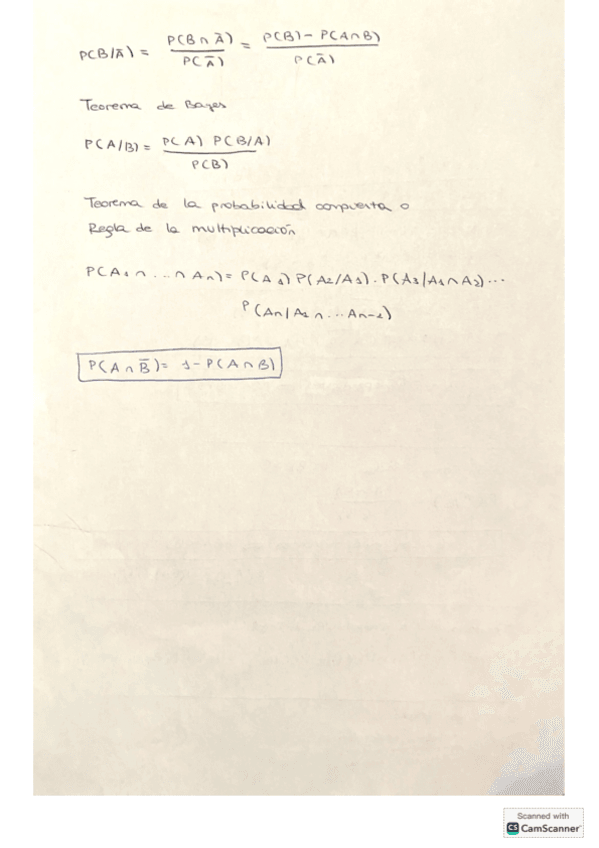 P(B/Ā) = P(B∩Ā)/P(Ā) = P(B)-P(A∩B)/P(Ā)
Teorema de Bayes
P(A/B) = P(A) P(B/A)/P(B)
Teorema de la probabilidad compuesta o
Regla de la multiplicación
P(A₁∩...∩An) = P(A₁) P(A₂/A₁).P(A₃/A₁∩A₂)...
P(An/A₁∩...An-1)
P(A∩B̄) = 1-P(A∩B)
Scanned with
CS CamScanner